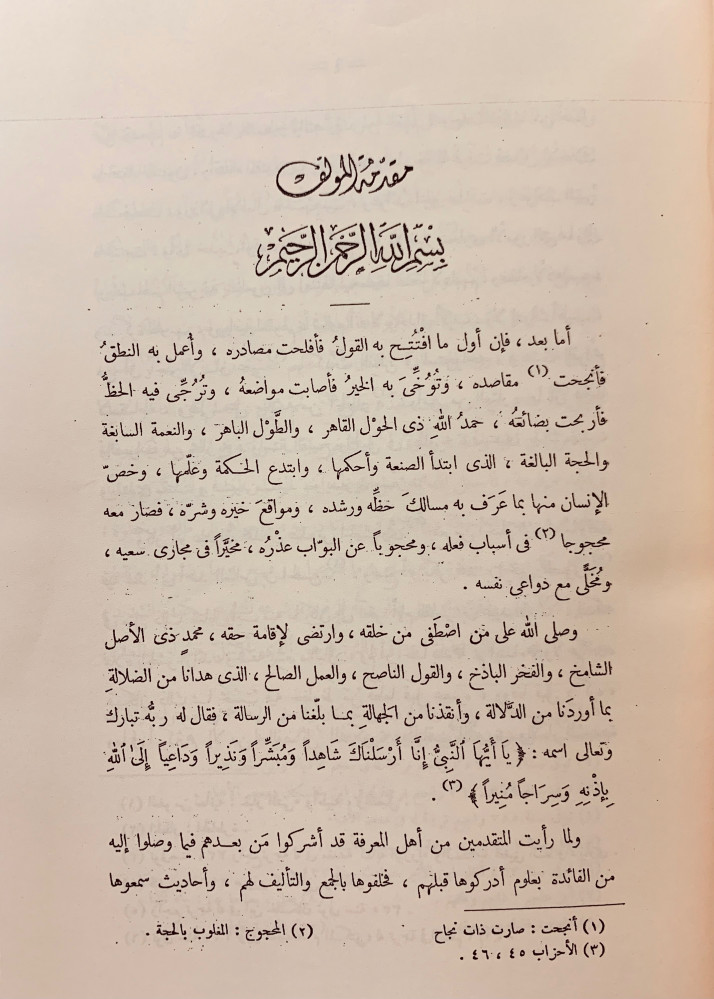 مقدّمة المؤلف
بِسْمِ اللهِ الرَّحْمنِ الرَّحِيمِ
أما بعد ، فإن أول ما افْتُتِح به القولُ فأفلحت مصادره ، وأُعمل به النطقُ
فأنجحت (١) مقاصده ، وتُوُخِّىَ به الخيرُ فأصابت مواضعهُ ، وتُرُجِّى فيه الحظُّ
فأربحت بضائعُه ، حمدُ اللهِ ذى الحوْل القاهر ، والطَّوْل الباهر ، والنعمة السابغة
والحجة البالغة ، الذى ابتدأ الصنعة وأحكمها ، وابتدع الحكمة وعَلّمها ، وخصّ
الإنسان منها بما عَرَف به مسالكَ حظِّه ورشده ، ومواقعَ خيره وشرّه ، فصار معه
محجوجا (٢) فى أسباب فعله ، ومحجوباً عن البوّاب عذْرُه ، مخيَّراً فى مجارى سعيه ،
ومُخَلًّى مع دواعى نفسه .
وصلى الله على من اصْطَفى من خلقه ، وارتضى لإقامة حقه ، محمدٍ ذى الأصل
الشامخ ، والفخر الباذخ ، والقول الناصح ، والعمل الصالح ، الذى هدانا من الضلالةِ
بما أوردَنا من الدَّلالة ، وأنقذنا من الجهالةِ بمـا بلّغنا من الرسالة ، فقال له ربُّه تبارك
وتعالى اسمه : ﴿ يَا أَيُّهَا ٱلنَّبِيُّ إِنَّا أَرْسَلْنَاكَ شَاهِداً وَمُبَشِّراً وَنَذِيراً وَدَاعِياً إِلَىٰ ٱللهِ
بِإِذْنِهِ وَسِرَاجاً مُنِيراً ﴾ (٣) .
ولما رأيت المتقدمين من أهل المعرفة قد أشركوا مَن بعـدهم فيما وصلوا إليه
من الفائدة بعلوم أدركوها قبلهم ، فخلفوها بالجمع والتأليف لهم ، وأحاديث سمعوها
(١) أنجحت : صارت ذات نجاح (٢) المحجوج : المغلوب بالحجة .
(٣) الأحزاب ٤٥ ، ٤٦ .